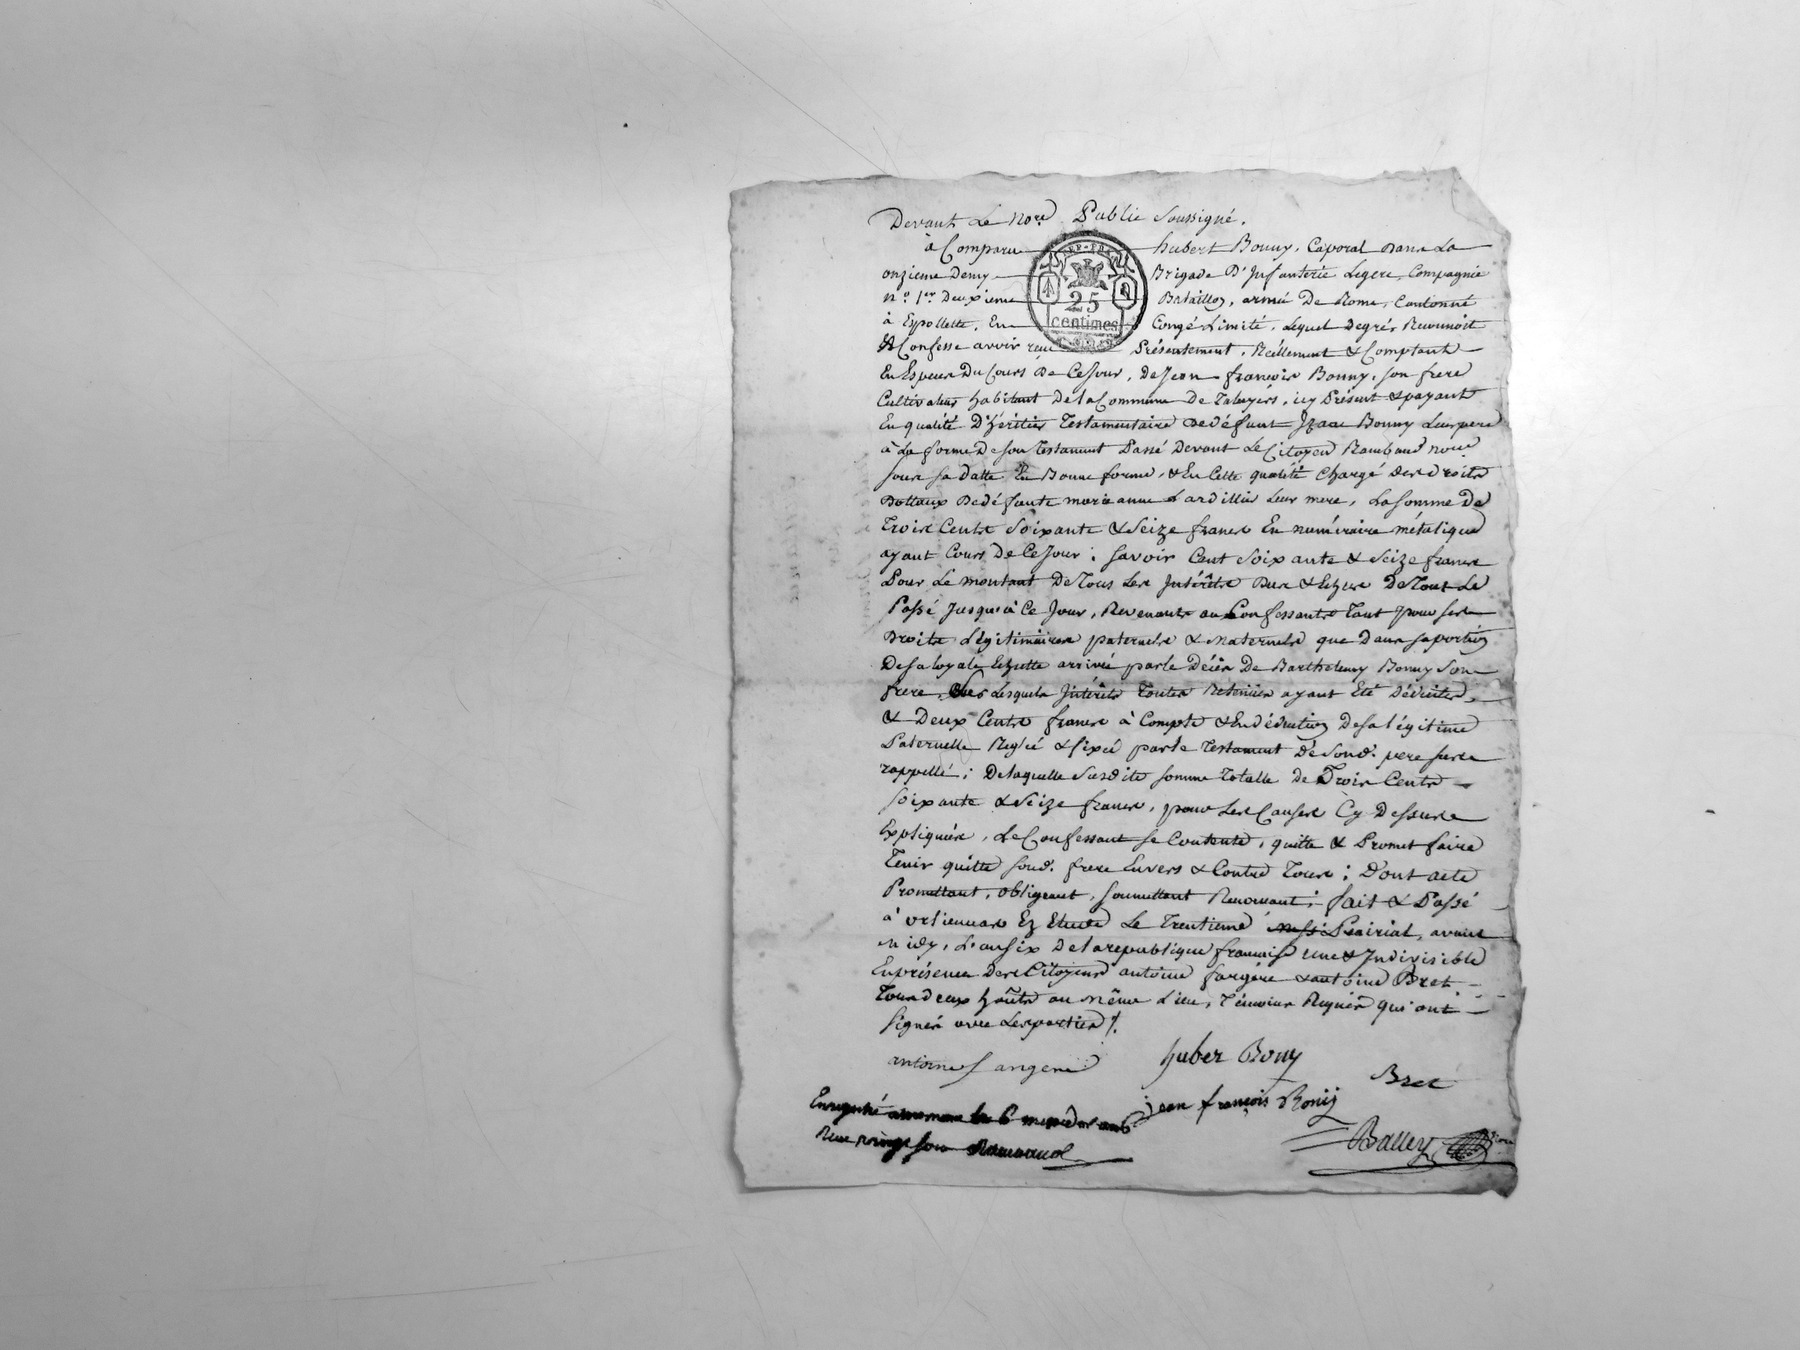 Devant Le No.re Public Soussigné.
à Comparu hubert Bonny, Caporal dans La
onzieme Demy Brigade D'Infanterie Legere, Compagnie
n.o 1.er Deuxieme Bataillon, armée De Rome, Cantonné
REP. FRA.
25
centimes
à Espollette, En Congé Limité, Lequel Degrés Reconnoit
& Confesse avoir reçu Présentement, Réellement & Comptant
En Espèces Du Cours de Ce Jour, De Jean françois Bonny, son frere
Cultivateur habitant De la Commune De Taluyers, icy Présent & payant
En qualité D'héritier Testamentaire de défunt Izaac Bonny Leur pere
à La forme De son Testament Passé Devant Le Citoyen Rambaud no.re
sous sa Datte En Bonne forme, & En Cette qualité Chargé des droits
Dottaux De défunte marie anne Lardillier Leur mere, La somme De
Trois Cents Soixante & Seize francs En numéraire métalique
ayant Cours De Ce Jour ; savoir Cent Soixante & Seize francs
Pour Le montant De Tous Les Intérêts Dus & Echus De Tout Le
Passé Jusqu'à Ce Jour, Revenants au Confessant Tant pour ses
Droits Légitimaires paternels & maternels que Dans sa portion
De sa loyale Echutte arrivée par le Décès De Barthelemy Bonny son
frere, Lesquels Intérêts Toutes Retenues ayant Eté Déduites,
& Deux Cents francs à Compte & En déduction De sa légitime
Paternelle Reglée & fixée par le Testament De Son d. pere sus
rappellé ; De laquelle Susdite somme Totalle de Trois Cents
soixante & Seize francs, pour Les Causes Cy Dessus
Expliquées, Le Confessant se Contente, quitte & Promet faire
Tenir quitte son d. frere Envers & Contre Tous ; D'ont acte
Promettant, obligeant, soumettant Renonçant ; fait & Passé
à orlienas En Etude Le Trentieme Prairial, avant
midy, L'an six De la republique française une & Indivisible
En présence Des Citoyens antoine fargère & antoine Bret
Tous deux hab.ts au même Lieu, Témoins Requis qui ont
signés avec Les parties /.
antoine fargere huber Bony
Bret
jean françois Bonij
Enregistré a mornan le 6 messidor an 6
Reçu
Balley